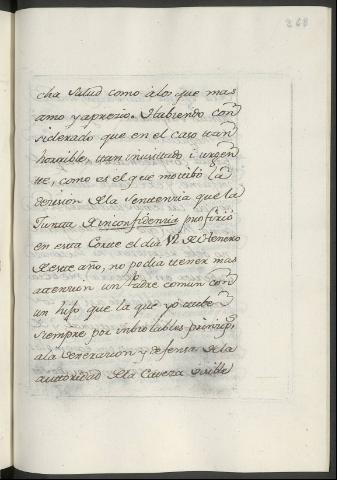 268
cha Salud como álos que mas
amo y aprezio. Habiendo con
siderado que en el caso tan
horrible, tan inusitado i urgen
te, como es el que motibó la
decision de la Sentencia que la
Junta de inconfidencia profirió
en esta Corte el dia 12 de Henero
de este año, no podia tener mas
atencion un Padre comun con
un hijo que la que yo tube
siempre por inbiolables princip.s
ala Veneracion y defensa de la
autoridad de la Caveza visible